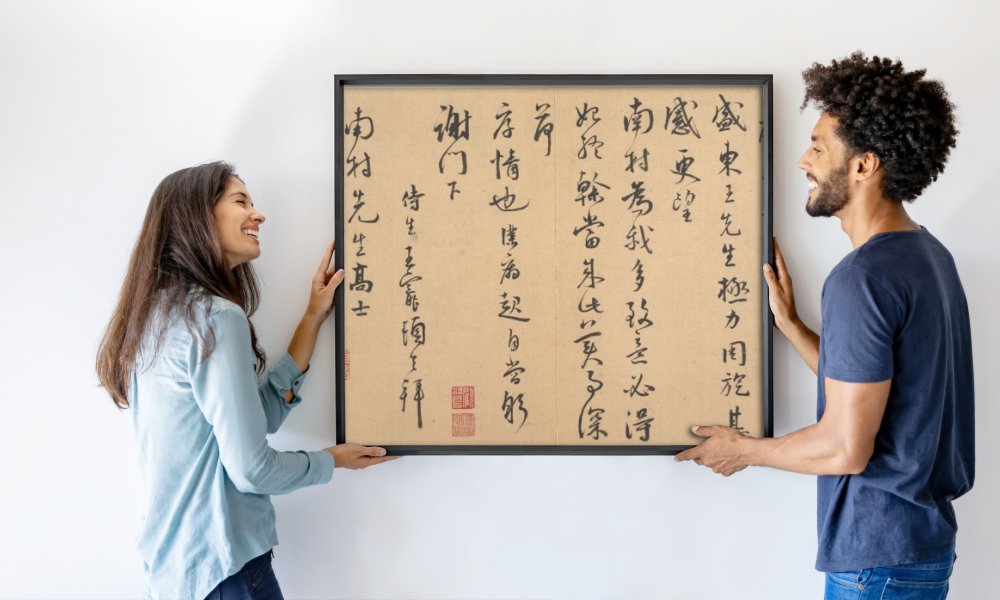 盛東王先生極力周旋其
感更望
南村為我多致意必得
始終幹當成此美事深
荷
厚情也僕病起自當躬
謝門下
侍生王寵頓首拜
南村先生高士